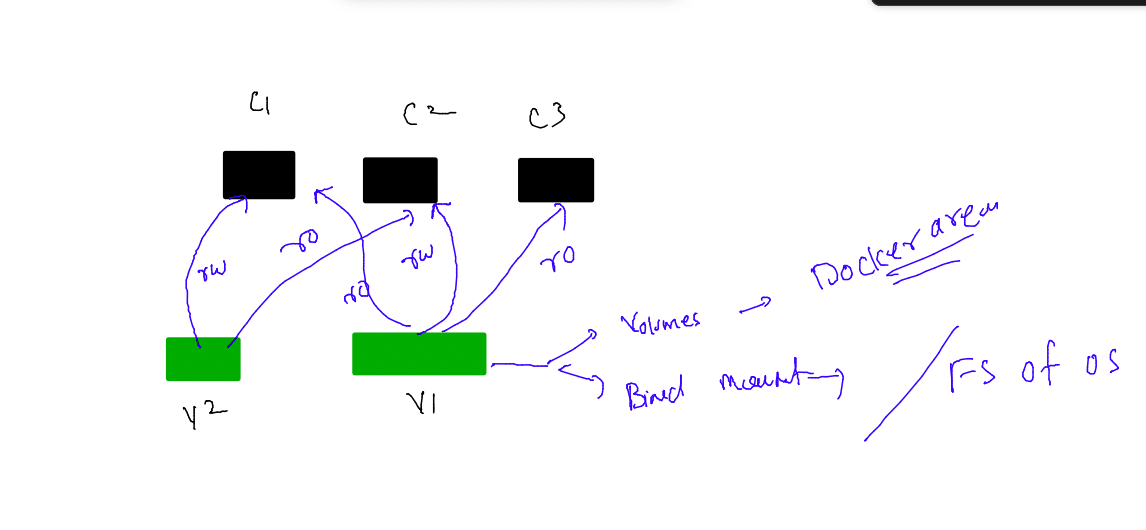 C1
C2
C3
rw
ro
ro
rw
ro
Volumes → Docker area
Bind mount → / FS of OS
V2
V1